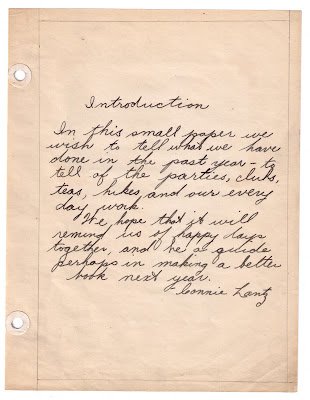 Introduction
In this small paper we
wish to tell what we have
done in the past year - to
tell of the parties, clubs,
teas, hikes, and our every
day work.
We hope that it will
remind us of happy days
together, and be a guide
perhaps in making a better
book next year.
- Connie Lantz